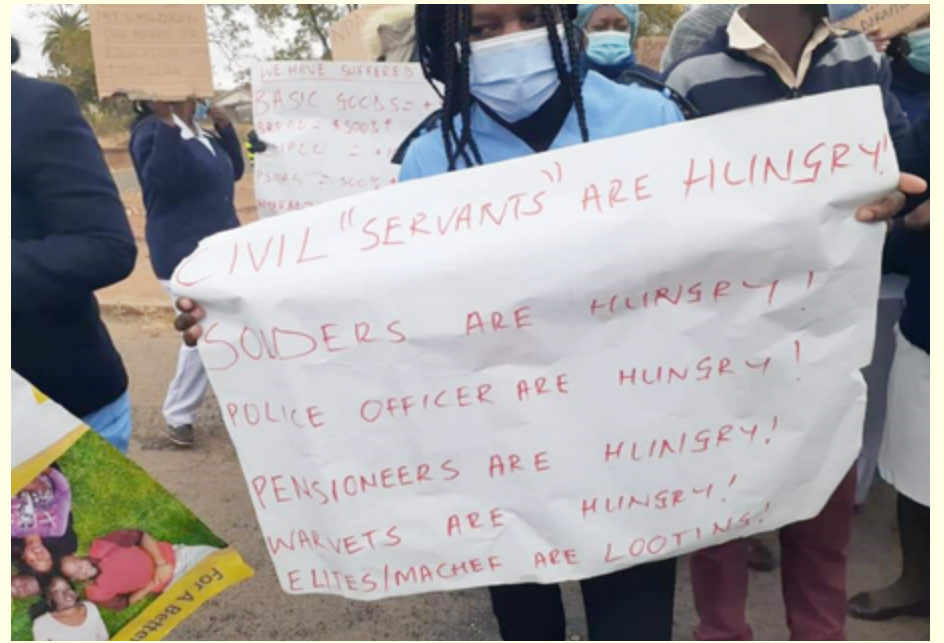 MY CHILDREN
WE HAVE SUFFERED
BASIC GOODS = +
BREAD = $500% ↑
CIVIL "SERVANTS" ARE HUNGRY!
SOLDERS ARE HUNGRY!
POLICE OFFICER ARE HUNGRY!
PENSIONEERS ARE HUNGRY!
WARVETS ARE HUNGRY!
ELITES/MACHEF ARE LOOTING!
For A Better